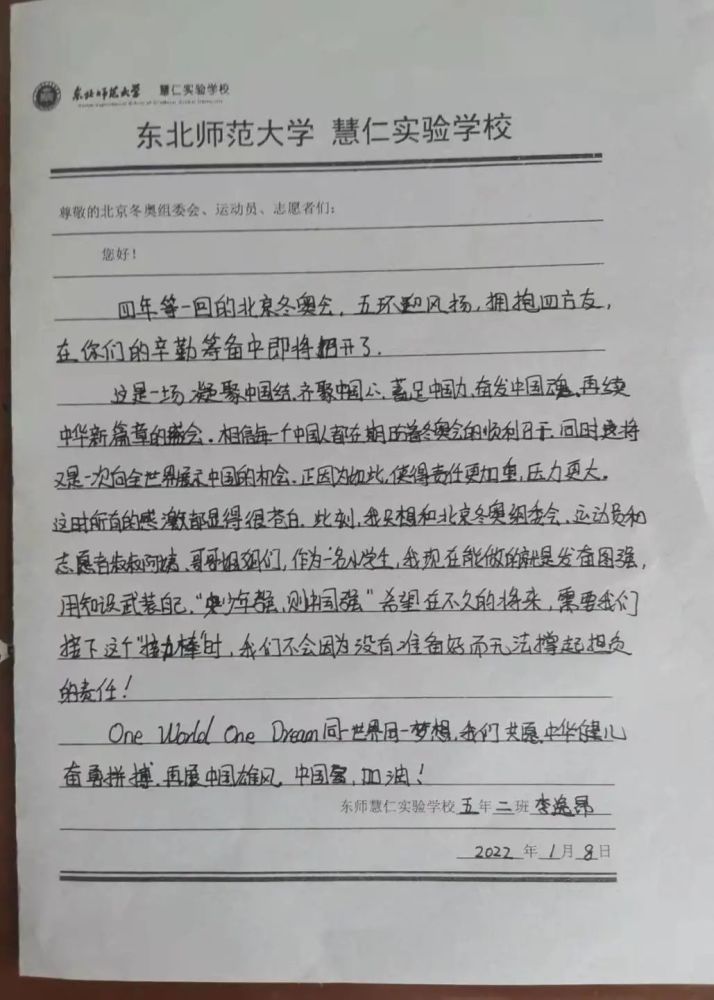 东北师范大学 慧仁实验学校
东北师范大学 慧仁实验学校
尊敬的北京冬奥组委会、运动员、志愿者们：
您好！
四年等一回的北京冬奥会，五环迎风扬，拥抱四方友，
在你们的辛勤筹备中即将召开了.
这是一场凝聚中国结.齐聚中国心.蓄足中国力.奋发中国魂.再续
中华新篇章的盛会.相信每一个中国人都在期盼着冬奥会的顺利召开.同时这将
又是一次向全世界展示中国的机会.正因为如此,使得责任更加重,压力更大.
这时所有的感激都显得很苍白.此刻,我只想和北京冬奥组委会、运动员和
志愿者叔叔阿姨、哥哥姐姐们,作为一名小学生,我现在能做的就是发奋图强,
用知识武装自己."少年强,则中国强"希望在不久的将来,需要我们
接下这个"接力棒"时,我们不会因为没有准备好而无法撑起担负
的责任！
One World One Dream同一世界同一梦想.我们共愿中华健儿
奋勇拼搏.再展中国雄风.中国 加油！
东师慧仁实验学校五年二班李逸昂
2022年1月8日